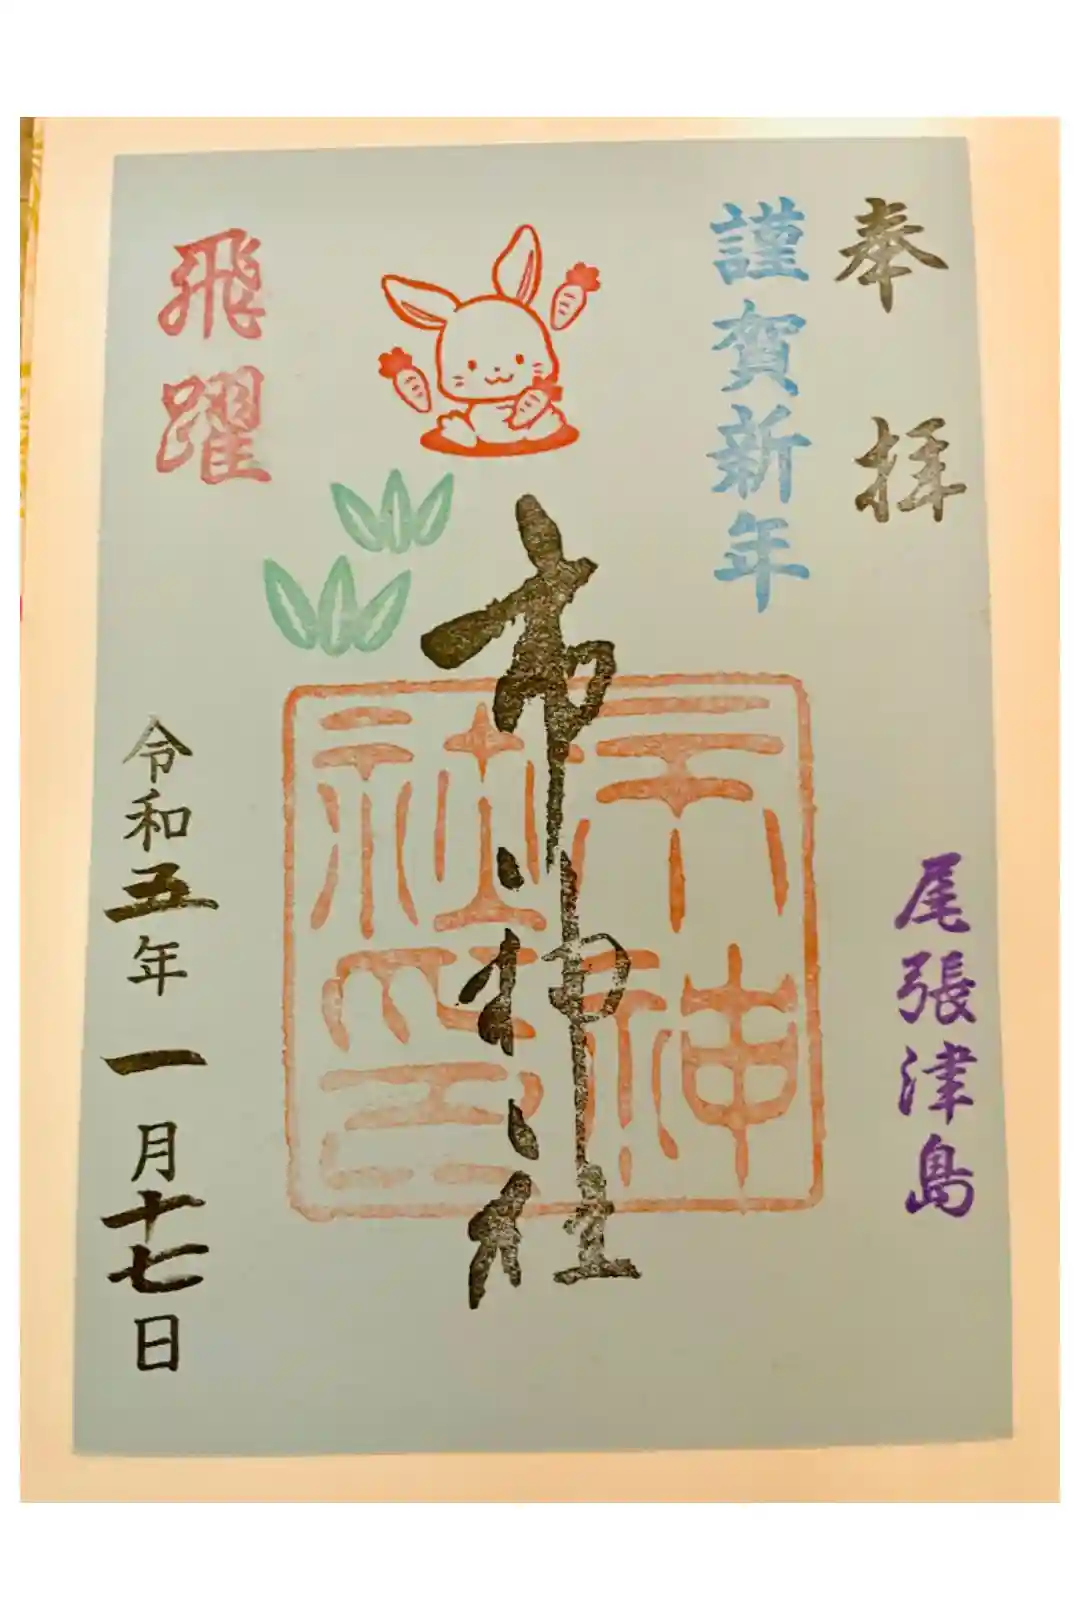 奉拝
謹賀新年
尾張津島
市神社
市神社印
飛躍
令和五年一月十七日